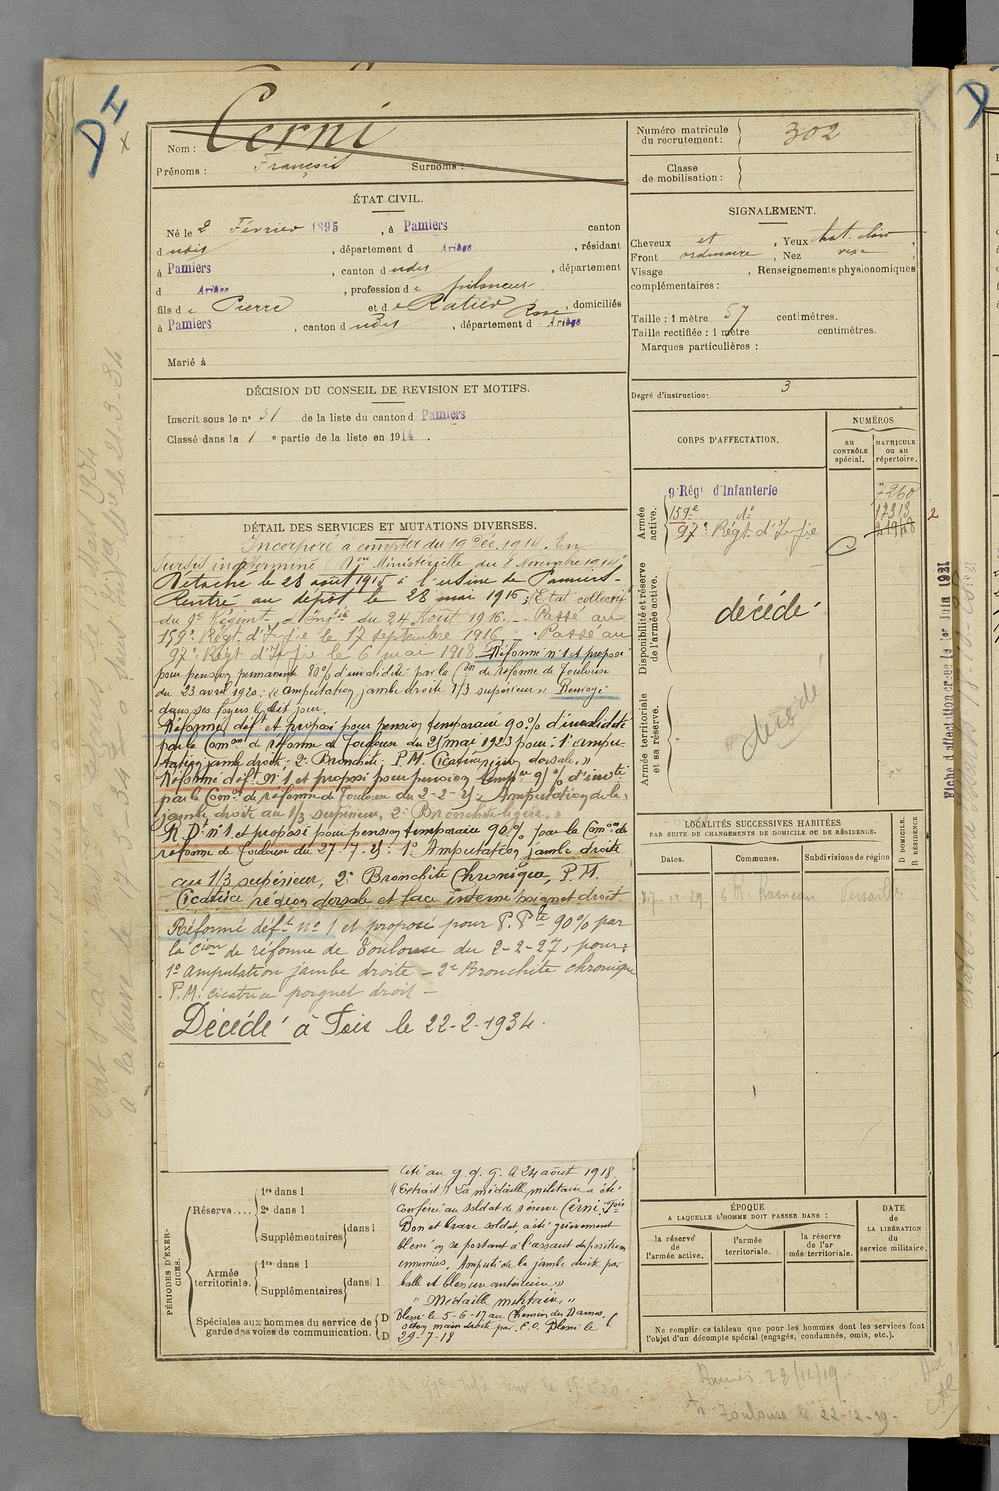 D I
x
Nom : Cerni
Prénoms : François Surnoms :
ÉTAT CIVIL.
Né le 2 Février 1895, à Pamiers canton
d udit, département d Ariège, résidant
à Pamiers, canton d udit, département
d Ariège, profession de
fils de Pierre et de Ratier Rose, domiciliés
à Pamiers, canton d udit, département d Ariège
Marié à
DÉCISION DU CONSEIL DE REVISION ET MOTIFS.
Inscrit sous le nº 31 de la liste du canton d Pamiers
Classé dans la 1 e partie de la liste en 1914.
DÉTAIL DES SERVICES ET MUTATIONS DIVERSES.
Incorporé à compter du 19 Déc. 1914. En
sursis indéterminé (Don Ministérielle du 8 Novembre 1914)
Détaché le 28 août 1915 à l'usine de Pamiers-
Rentré au dépôt le 28 mai 1916; Etat collectif
du 9e Régiment d'Infie du 24 Août 1916. - Passé au
159e Régt d'Infie le 17 septembre 1916 - Passé au
97e Régt d'Infie le 6 mai 1918. Réformé nº 1 et proposé
pour pension permanente 80% d'invalidité par la Con de réforme de Toulouse
du 23 avril 1920: "amputation jambe droite 1/3 supérieur" Renvoyé
dans ses foyers le dit jour.
Réformé deft et proposé pour pension temporaire 90% d'invalidité
par la Comon de réforme de Toulouse du 25 mai 1923 pour: 1º ampu-
tation jambe droite - 2º Bronchite, P.M. Cicatrice région dorsale, "
Réformé deft Nº 1 et proposé pour pension tempre 95% d'invté
par la Comon de réforme de Toulouse du 2-2-25: Amputation de la
jambe droite au 1/3 supérieur, 2º Bronchite légère. "
R. Dt nº 1 et proposé pour pension temporaire 90% par la Comon de
réforme de Toulouse du 27-7-25: 1º Amputation jambe droite
au 1/3 supérieur, 2º Bronchite Chronique, P.M.
Cicatrice région dorsale et face interne poignet droit.
Réformé déft nº 1 et proposé pour P. Pte 90% par
la Cion de réforme de Toulouse du 2-2-27, pour:
1º amputation jambe droite - 2º Bronchite chronique
- P.M. cicatrice poignet droit -
Décédé à Foix le 22-2-1934.
PÉRIODES D'EXERCICES.
Réserve....
1re dans l
2e dans l
Supplémentaires dans l
Armée territoriale.
1re dans l
Supplémentaires dans l
Spéciales aux hommes du service de garde des voies de communication.
D
D
Cité au g. q. g. le 24 août 1918.
"(Extrait) La médaille militaire a été
conférée au soldat de réserve Cerni. fois
Bon et brave soldat, a été grièvement
blessé en se portant à l'assaut des positions
ennemies. Amputé de la jambe droite par
balle et blessure antérieure"
"Médaille militaire"
Blessé le 5-6-17 au Chemin des Dames.
main droite par E.O. Blessé le
29-7-18
Numéro matricule du recrutement : 302
Classe de mobilisation :
SIGNALEMENT.
Cheveux et, Yeux chat. clair,
Front ordinaire, Nez
Visage, Renseignements physionomiques
complémentaires :
Taille : 1 mètre 57 centimètres.
Taille rectifiée : 1 mètre centimètres.
Marques particulières :
Degré d'instruction : 3
CORPS D'AFFECTATION.
NUMÉROS
au CONTRÔLE spécial.
MATRICULE ou au répertoire.
Armée active.
9e Régt d'Infanterie 7260
159e dº 17313 2
97e Régt d'Infie
Disponibilité et réserve de l'armée active.
décédé
Armée territoriale et sa réserve.
décédé
Fiche d'allocation créée le 1er Juin 1921
LOCALITÉS SUCCESSIVES HABITÉES
PAR SUITE DE CHANGEMENTS DE DOMICILE OU DE RÉSIDENCE.
Dates.
Communes.
Subdivisions de région
D DOMICILE.
R RÉSIDENCE
6 R. Rameau Versailles
ÉPOQUE
A LAQUELLE L'HOMME DOIT PASSER DANS :
la réserve de l'armée active.
l'armée territoriale.
la réserve de l'armée territoriale.
DATE de LA LIBÉRATION du service militaire.
Ne remplir ce tableau que pour les hommes dont les services font
l'objet d'un décompte spécial (engagés, condamnés, omis, etc.).
28/11/19
Toulouse le 22-12-19-